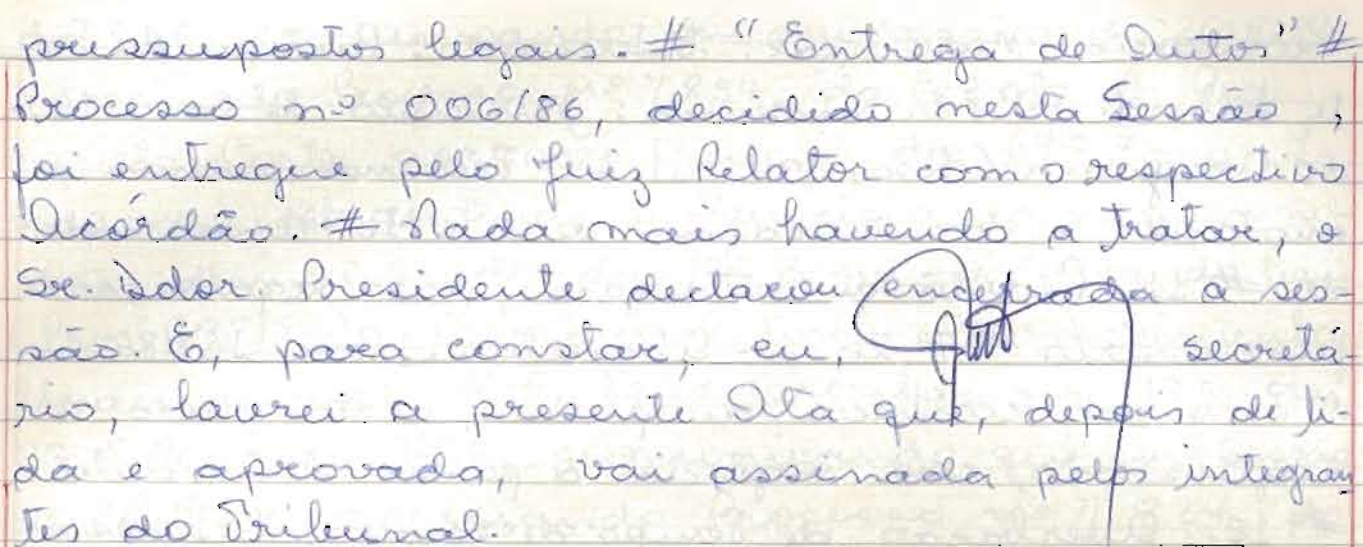 pressupostos legais. # "Entrega de Autos" #
Processo nº 006/86, decidido nesta Sessão,
foi entregue pelo Juiz Relator com o respectivo
Acórdão. # Nada mais havendo a tratar, o
Sr. Presidente declarou encerrada a ses-
são. E, para constar, eu, secretá-
rio, lavrei a presente Ata que, depois de li-
da e aprovada, vai assinada pelos integran
tes do Tribunal.